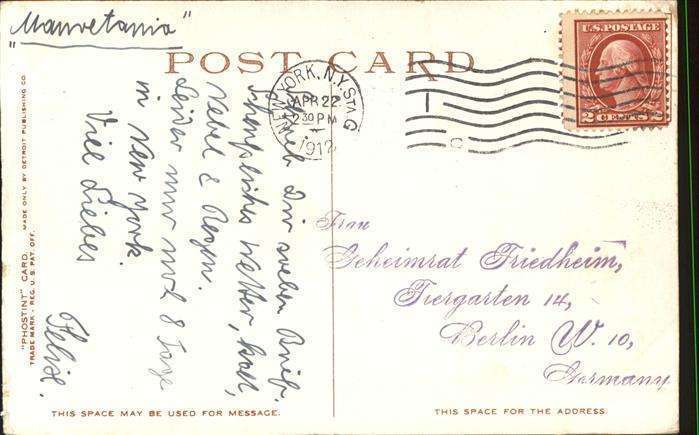 "Mauretania"
POST CARD
U.S. POSTAGE
2 CENTS 2
NEW YORK, N.Y. STA. G
APR 22
2 30 PM
1912
Schrieb Dir soeben Brief.
Scheussliches Wetter, kalt,
Nebel & Regen.
Leider nur noch 8 Tage
in New York.
Viel Liebes
Felix.
Frau
Geheimrat Friedheim,
Tiergarten 14,
Berlin W. 10,
Germany
"PHOSTINT" CARD.
MADE ONLY BY DETROIT PUBLISHING CO.
TRADE MARK - REG. U. S. PAT. OFF.
THIS SPACE MAY BE USED FOR MESSAGE.
THIS SPACE FOR THE ADDRESS